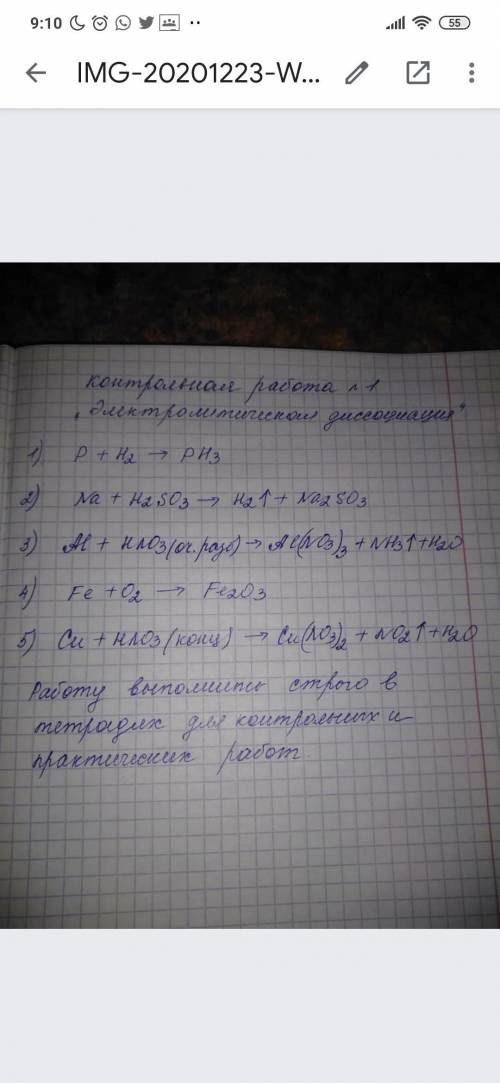 9:10 55
IMG-20201223-W...
Контрольная работа №1
"Электролитическая диссоциация"
1) P + H2 → PH3
2) Na + H2SO3 → H2↑ + Na2SO3
3) Al + HNO3 (оч. разб) → Al(NO3)3 + NH3↑ + H2O
4) Fe + O2 → Fe2O3
5) Cu + HNO3 (конц) → Cu(NO3)2 + NO2↑ + H2O
Работу выполнить строго в
тетрадях для контрольных и
практических работ.